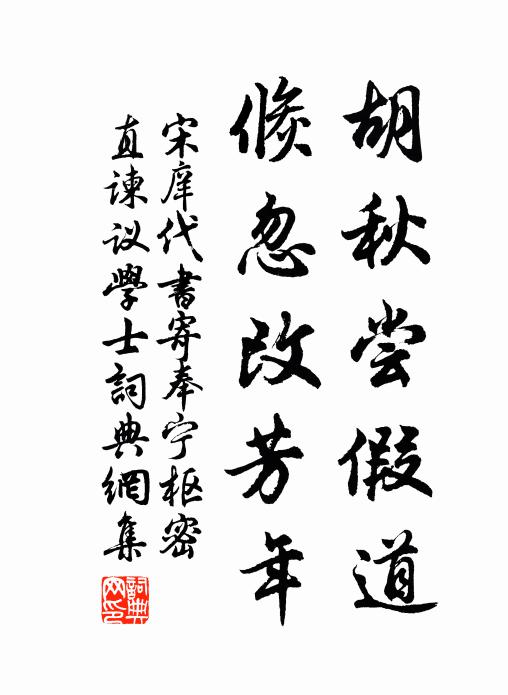 胡秋尝假道
倏忽改芳年
宋庠代书寄奉宁枢密
直谏议學士詞典網集
詞典网印